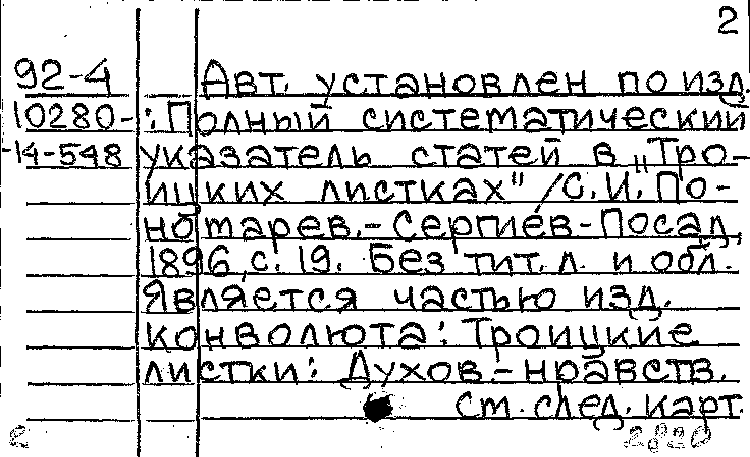 2
92-4 Авт. установлен по изд.
10280- : Полный систематический
14-548 указатель статей в „Тро-
ицких листках" / С. И. По-
нотарев. - Сергиев-Посад,
1896, с. 19. Без тит. л. и обл.
Является частью изд.
конволюта: Троицкие
листки: Духов.-нравств.
См. след. карт.
2820